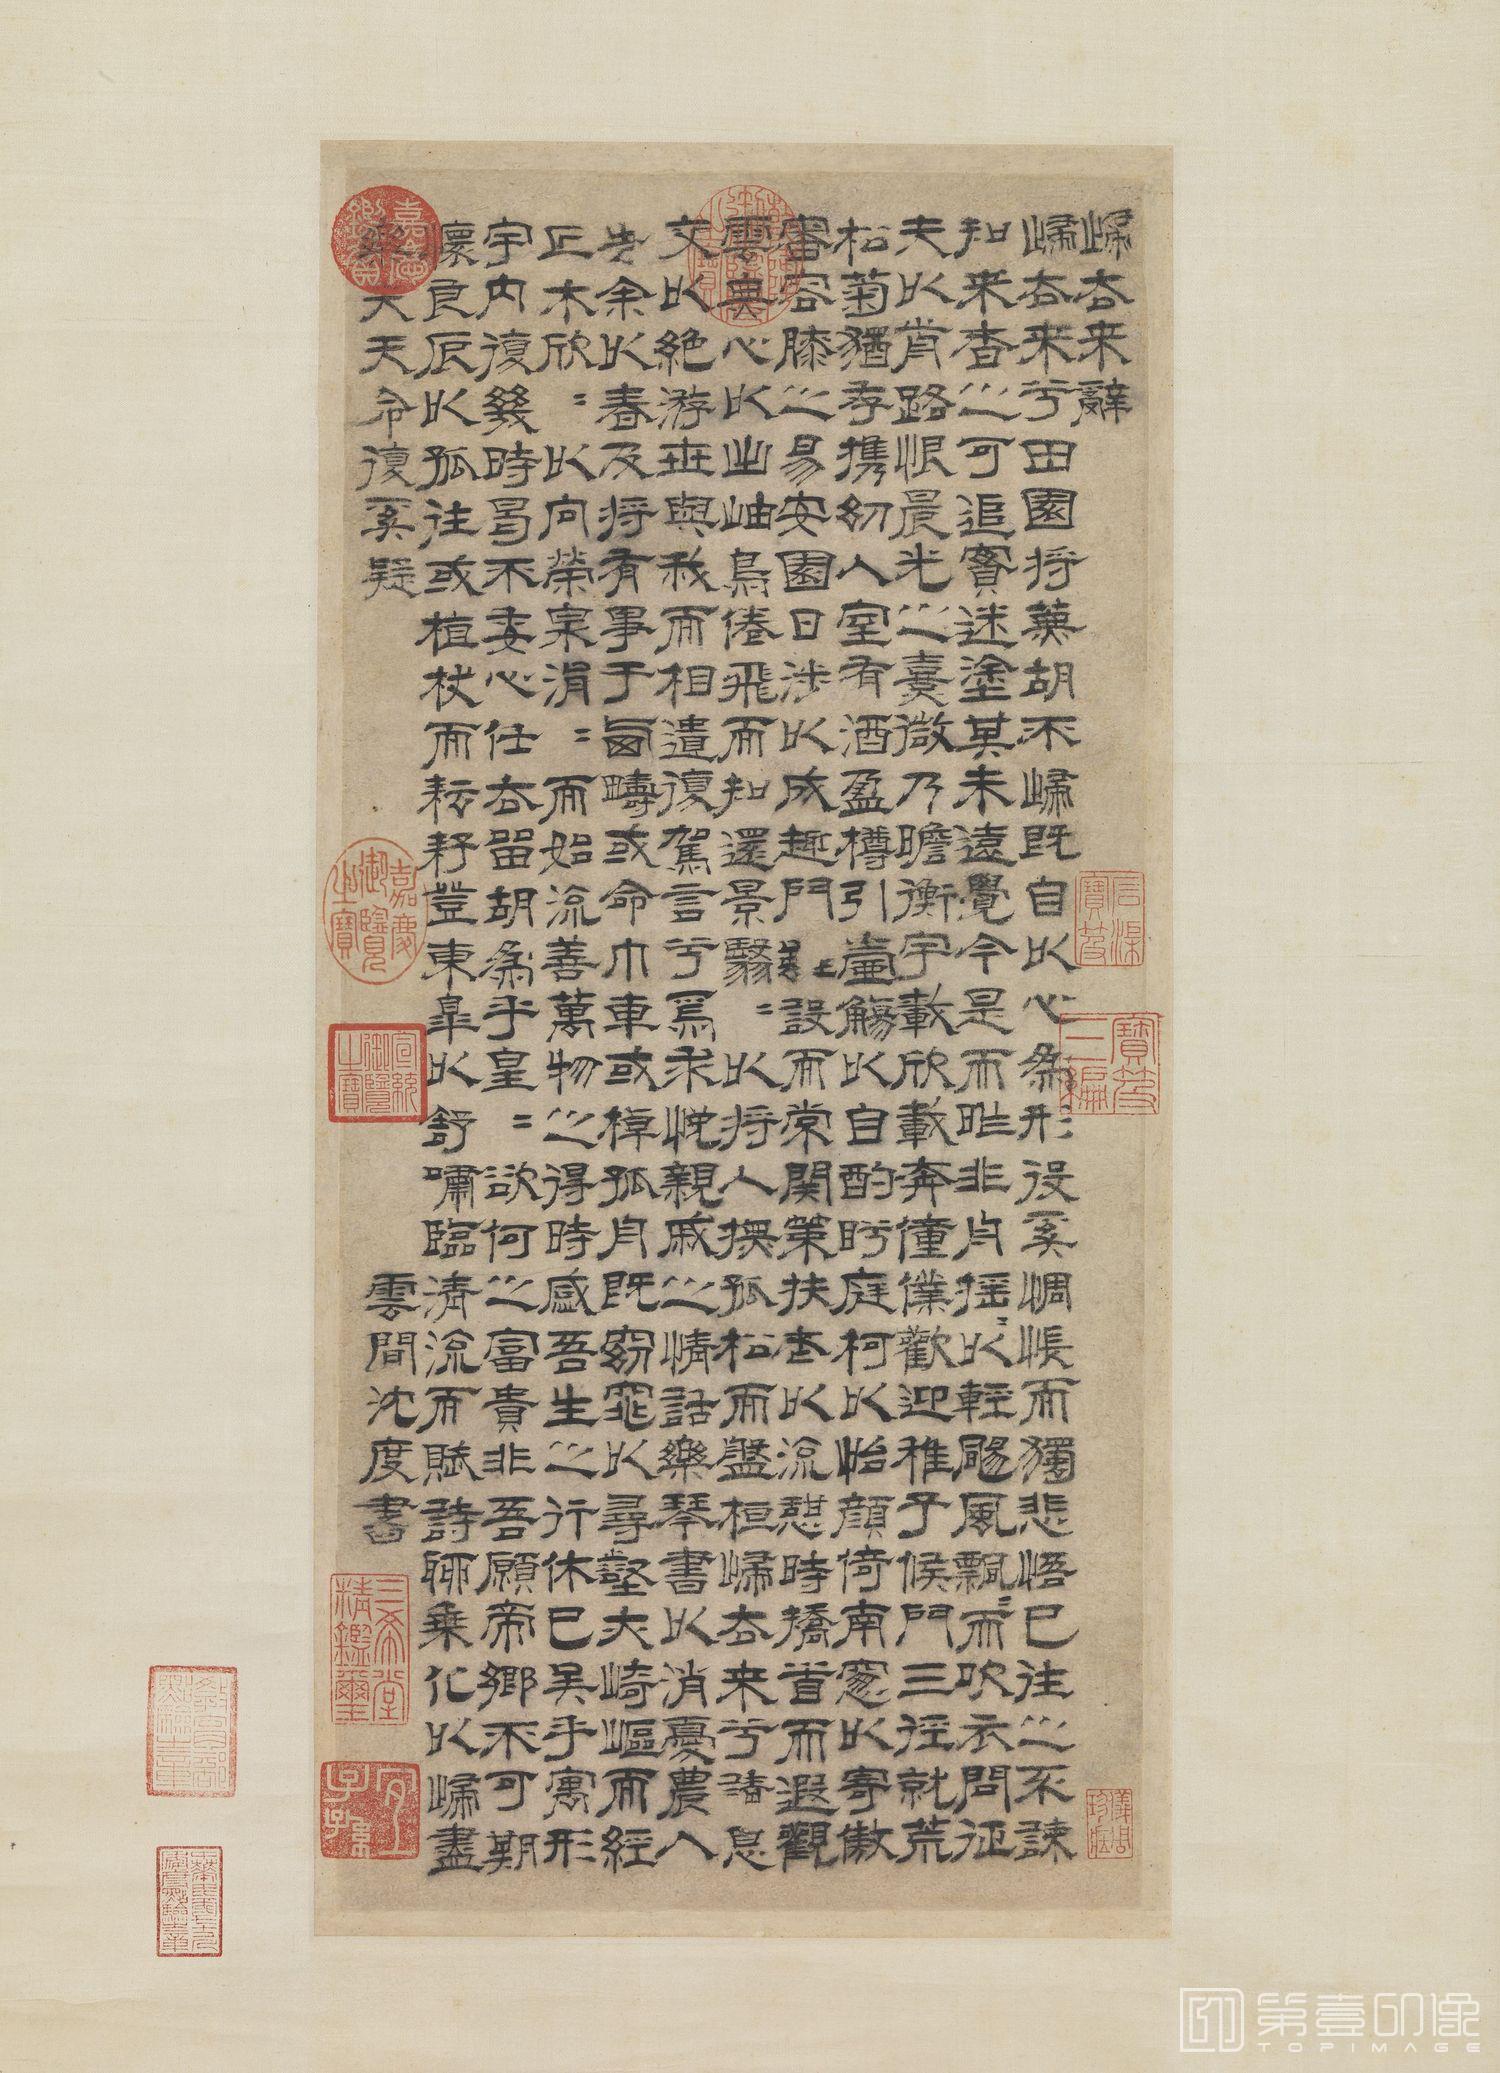 歸去来辭
歸去来兮田園将蕪胡不歸既自以心為形役奚惆悵而獨悲悟已往之不諫
知来者之可追寔迷塗其未遠覺今是而昨非舟揺〻以輕颺風飄〻而吹衣問征
夫以前路恨晨光之熹微乃瞻衡宇載欣載奔僮僕歡迎稚子候門三徑就荒
松菊猶存攜幼入室有酒盈樽引壺觴以自酌眄庭柯以怡顔倚南窓以寄傲
審容膝之易安園日涉以成趣門雖設而常関策扶老以流憩時矯首而遐觀
雲無心以出岫鳥倦飛而知還景翳〻以将入撫孤松而盤桓歸去来兮請息
交以絶游世與我而相遺復駕言兮焉求悦親戚之情話樂琴書以消憂農人
告余以春及将有事于西疇或命巾車或棹孤舟既窈窕以尋壑亦崎嶇而經
丘木欣〻以向榮泉涓〻而始流善萬物之得時感吾生之行休已矣乎寓形
宇内復幾時曷不委心任去留胡為乎皇〻欲何之富貴非吾願帝郷不可期
懷良辰以孤往或植杖而耘耔登東皋以舒嘯臨清流而賦詩聊乗化以歸盡
樂夫天命復奚疑
雲間沈度書
寶笈三編
儀周珍藏
嘉慶鑑賞
嘉慶御覽之寶
宣統御覽之寶
三希堂精鑑璽
宜子孫
第壹印像
TOPIMAGE